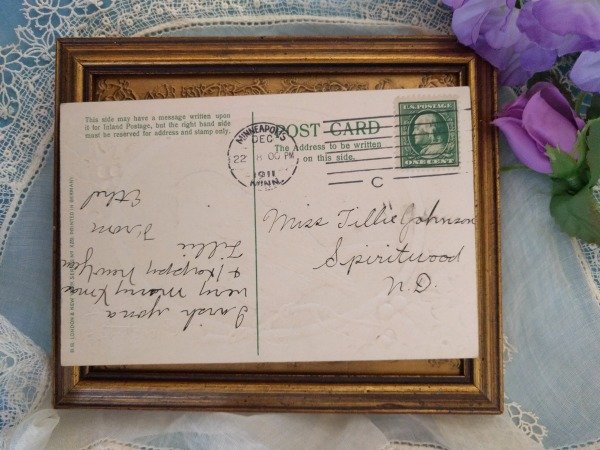 This side may have a message written upon
it for Inland Postage, but the right hand side
must be reserved for address and stamp only.
POST CARD
The Address to be written
on this side.
MINNEAPOLIS
DEC
22 8 00 PM
1911
MINN.
C
U.S. POSTAGE
ONE CENT
Miss Tillie Johnson
Spiritwood
N.D.
I wish you a
very merry Xmas
& Happy New Year
Tillie
From
Ethel
PRINTED IN GERMANY.